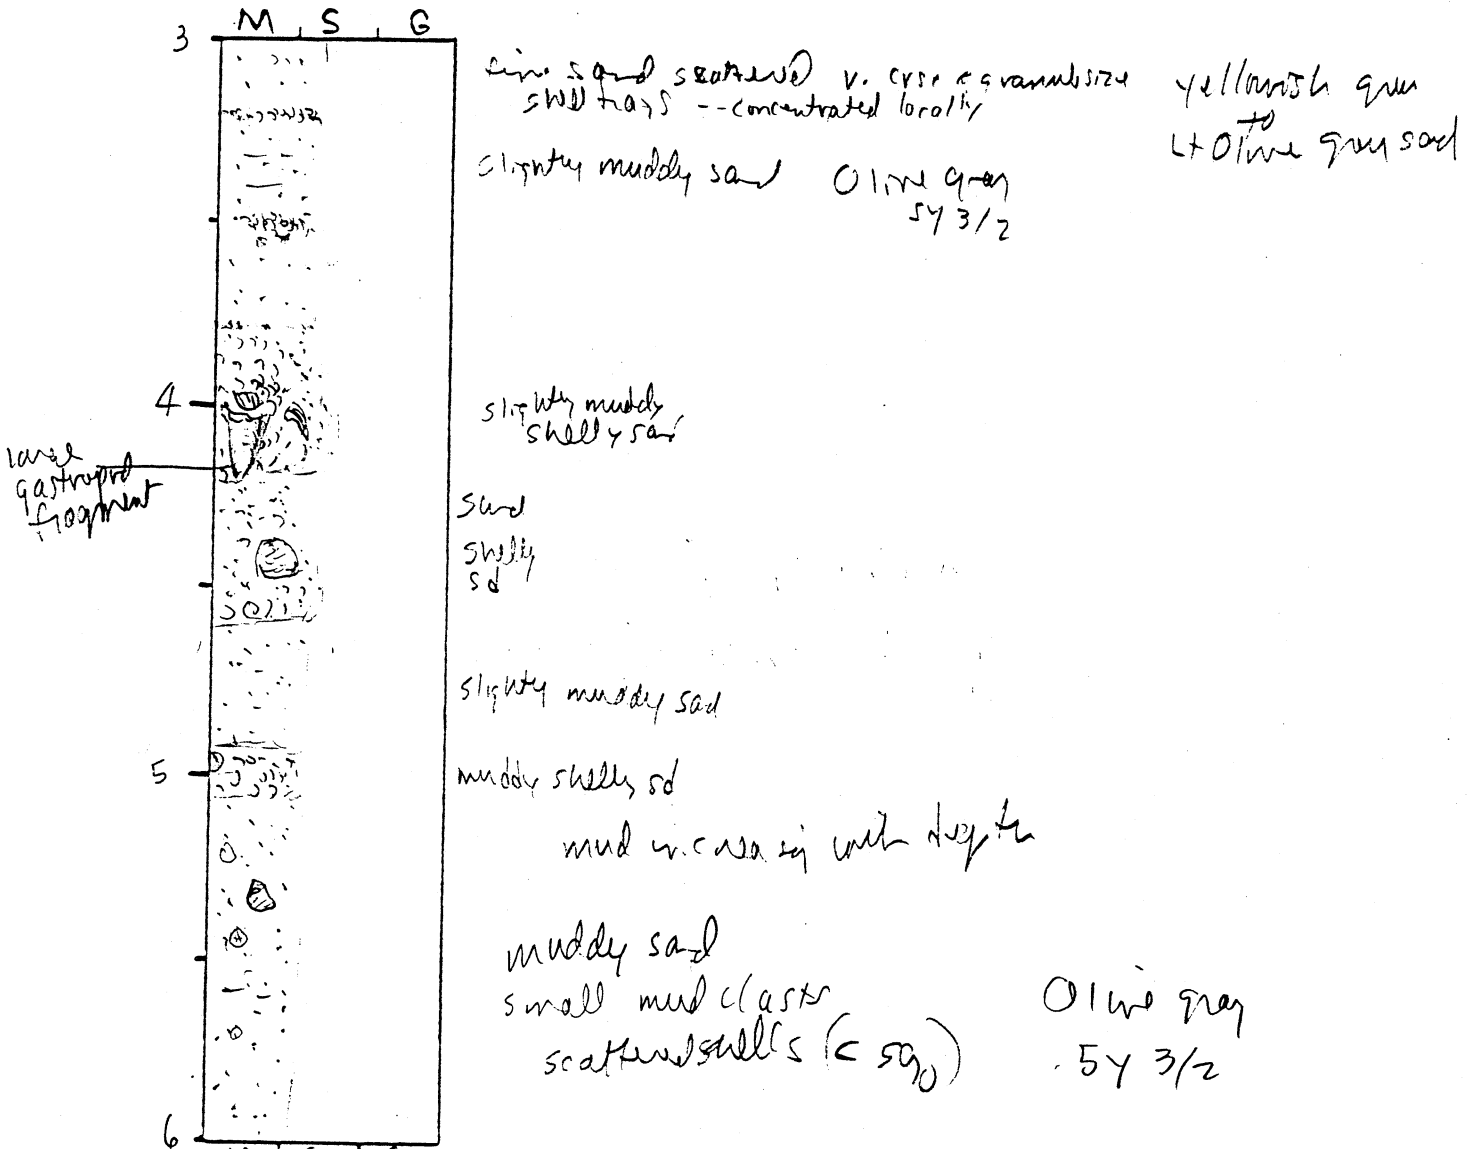 M S G
3
fine sand scattered v. crse & granule size
shell frags -- concentrated locally
yellowish gray
to
Lt Olive gray sand
slightly muddy sand Olive gray
5Y 3/2
4
slightly muddy
shelly sand
large
gastropod
fragment
sand
shelly
sd
slighty muddy sand
5
muddy shelly sd
mud increasing with depth
muddy sand
small mud clasts
scattered shells (< 5%)
Olive gray
5Y 3/2
6